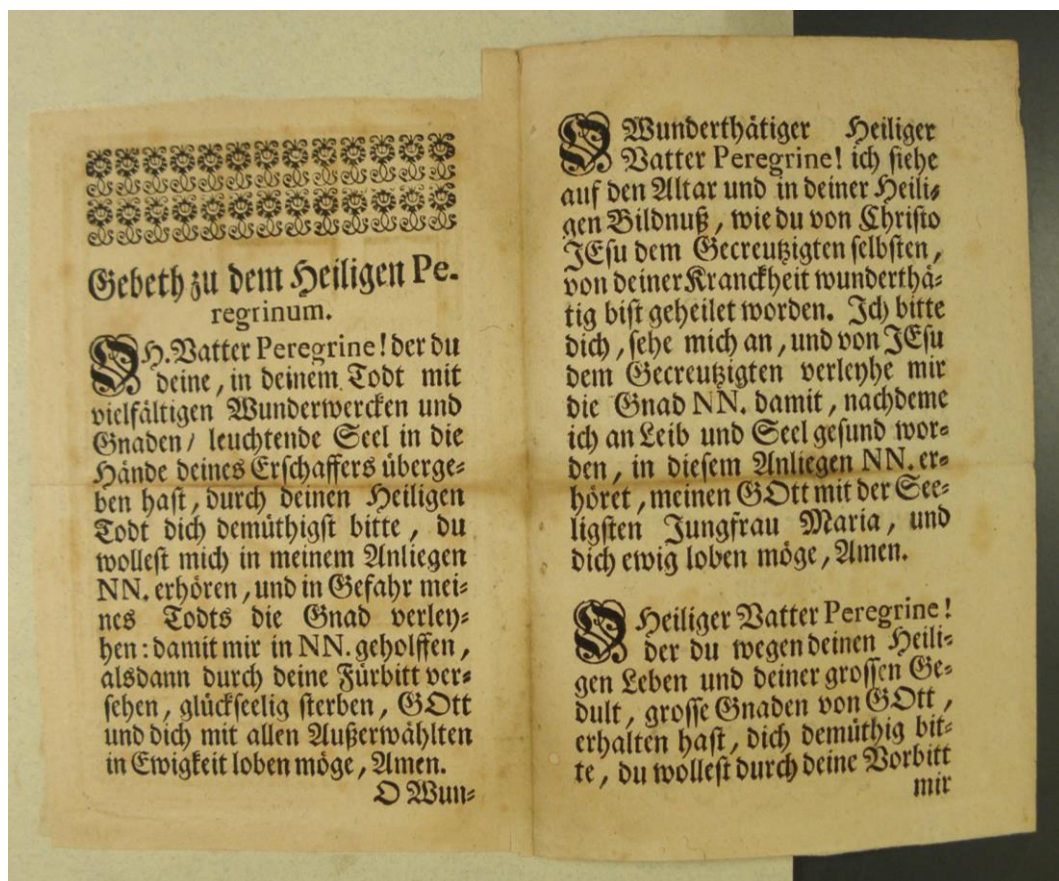 Gebeth zu dem Heiligen Pe-
regrinum.
OH. Vatter Peregrine! der du
deine, in deinem Todt mit
vielfältigen Wunderwercken und
Gnaden/ leuchtende Seel in die
Hände deines Erschaffers überge-
ben hast, durch deinen Heiligen
Todt dich demüthigst bitte, du
wollest mich in meinem Anliegen
NN. erhören, und in Gefahr mei-
nes Todts die Gnad verley-
hen: damit mir in NN. geholffen,
alsdann durch deine Fürbitt ver-
sehen, glückseelig sterben, GOtt
und dich mit allen Außerwählten
in Ewigkeit loben möge, Amen.
O Wun-
O Wunderthätiger Heiliger
Vatter Peregrine! ich siehe
auf den Altar und in deiner Heili-
gen Bildnuß, wie du von Christo
JEsu dem Gecreutzigten selbsten,
von deiner Kranckheit wunderthä-
tig bist geheilet worden. Ich bitte
dich, sehe mich an, und von JEsu
dem Gecreutzigten verleyhe mir
die Gnad NN. damit, nachdeme
ich an Leib und Seel gesund wor-
den, in diesem Anliegen NN. er-
höret, meinen GOtt mit der See-
ligsten Jungfrau Maria, und
dich ewig loben möge, Amen.
O Heiliger Vatter Peregrine!
der du wegen deinen Heili-
gen Leben und deiner grossen Ge-
dult, grosse Gnaden von GOtt,
erhalten hast, dich demüthig bit-
te, du wollest durch deine Vorbitt
mir